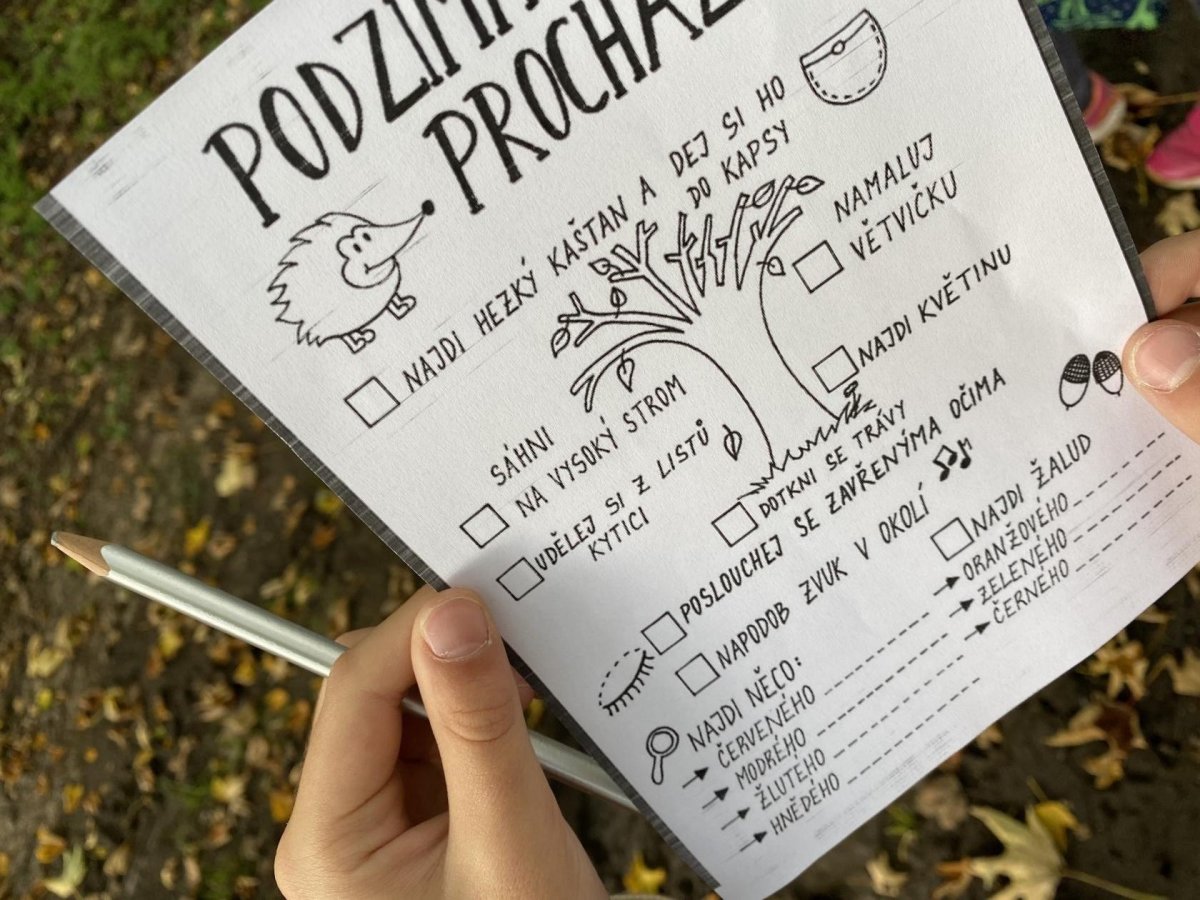 PODZIM
PROCHÁZ
NAJDI HEZKÝ KAŠTAN A DEJ SI HO
DO KAPSY
NAMALUJ
VĚTVIČKU
NAJDI KVĚTINU
SÁHNI
NA VYSOKÝ STROM
UDĚLEJ SI Z LISTŮ
KYTICI
DOTKNI SE TRÁVY
POSLOUCHEJ SE ZAVŘENÝMA OČIMA
NAPODOB ZVUK V OKOLÍ
NAJDI ŽALUD
NAJDI NĚCO:
ČERVENÉHO
MODRÉHO
ŽLUTÉHO
HNĚDÉHO
ORANŽOVÉHO
ZELENÉHO
ČERNÉHO